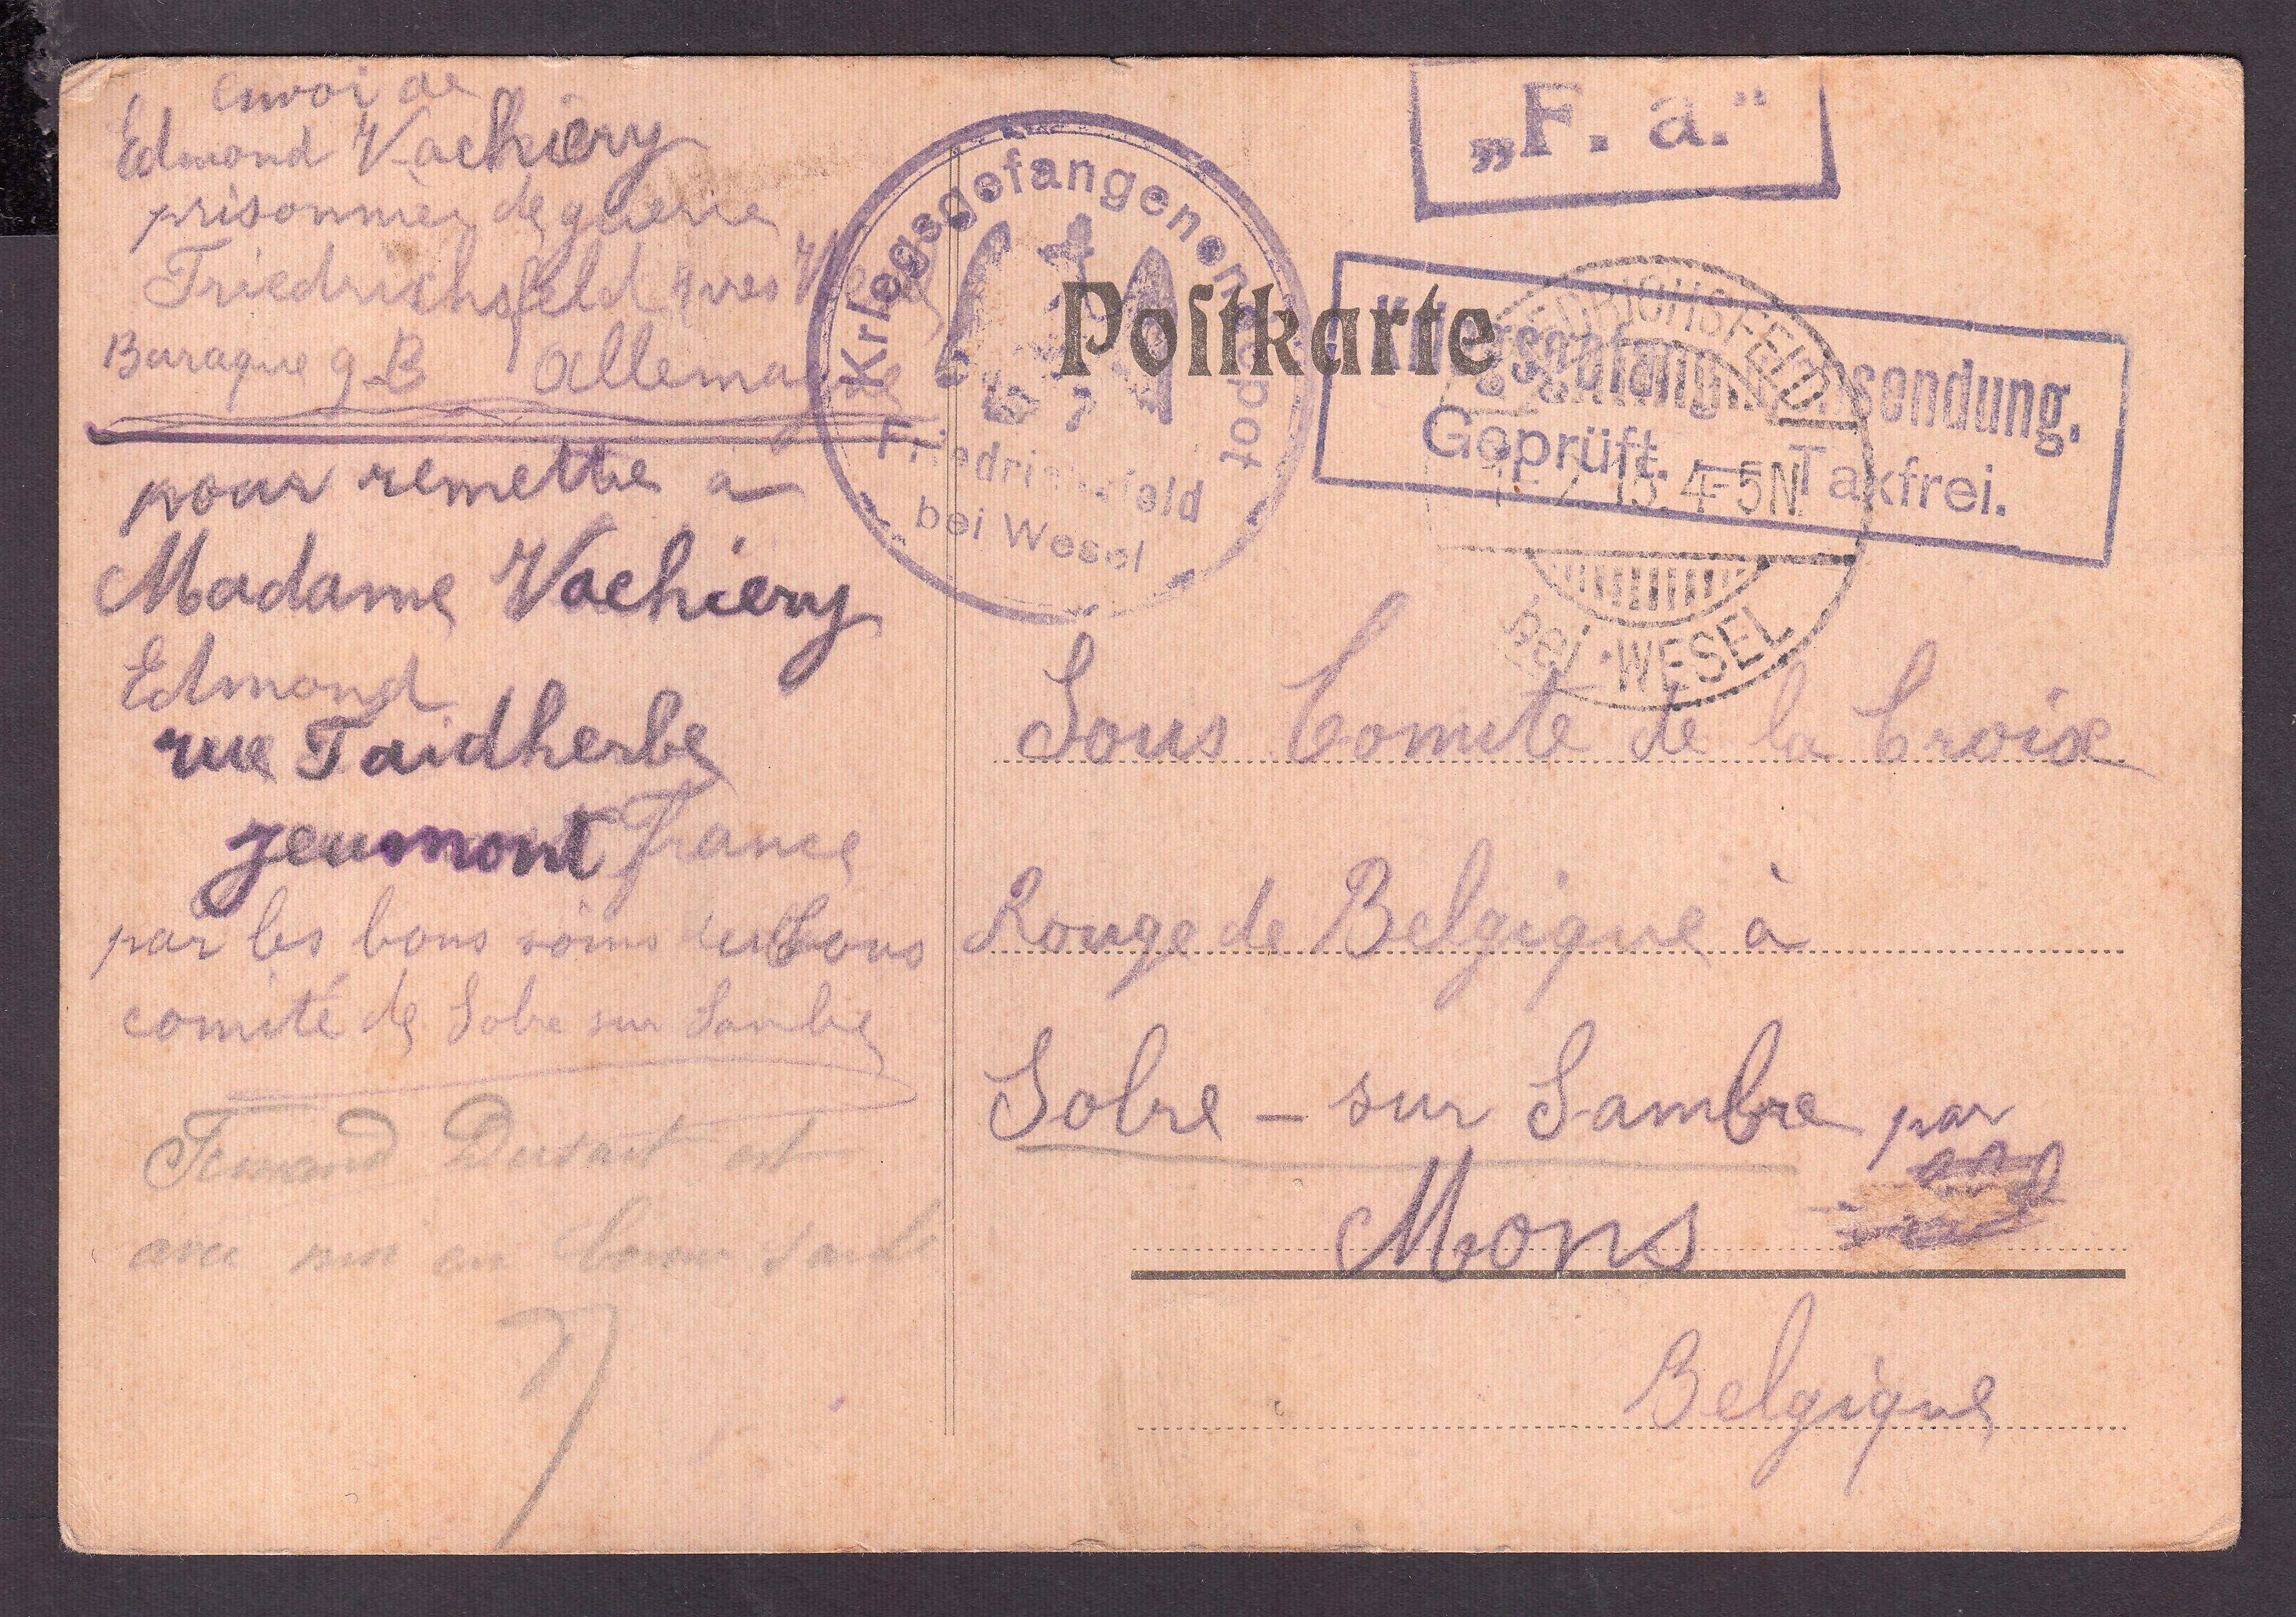 envoi de
Edmond Vachiery
prisonnier de guerre
Friedrichsfeld près Wesel
Baraque 9 B Allemagne
pour remettre à
Madame Vachiery
Edmond
rue Faidherbe
Jeumont France
par les bons soins du Sous
comité de Solre sur Sambre
Fernand Dusart est
avec moi en bonne santé
„F. a.“
Kriegsgefangenendepot
Friedrichsfeld
bei Wesel
Postkarte
Kriegsgefangenensendung.
Geprüft. — Taxfrei.
FRIEDRICHSFELD
15. 4-5N
bei WESEL
Sous Comité de la Croix
Rouge de Belgique à
Solre - sur Sambre par
Mons
Belgique